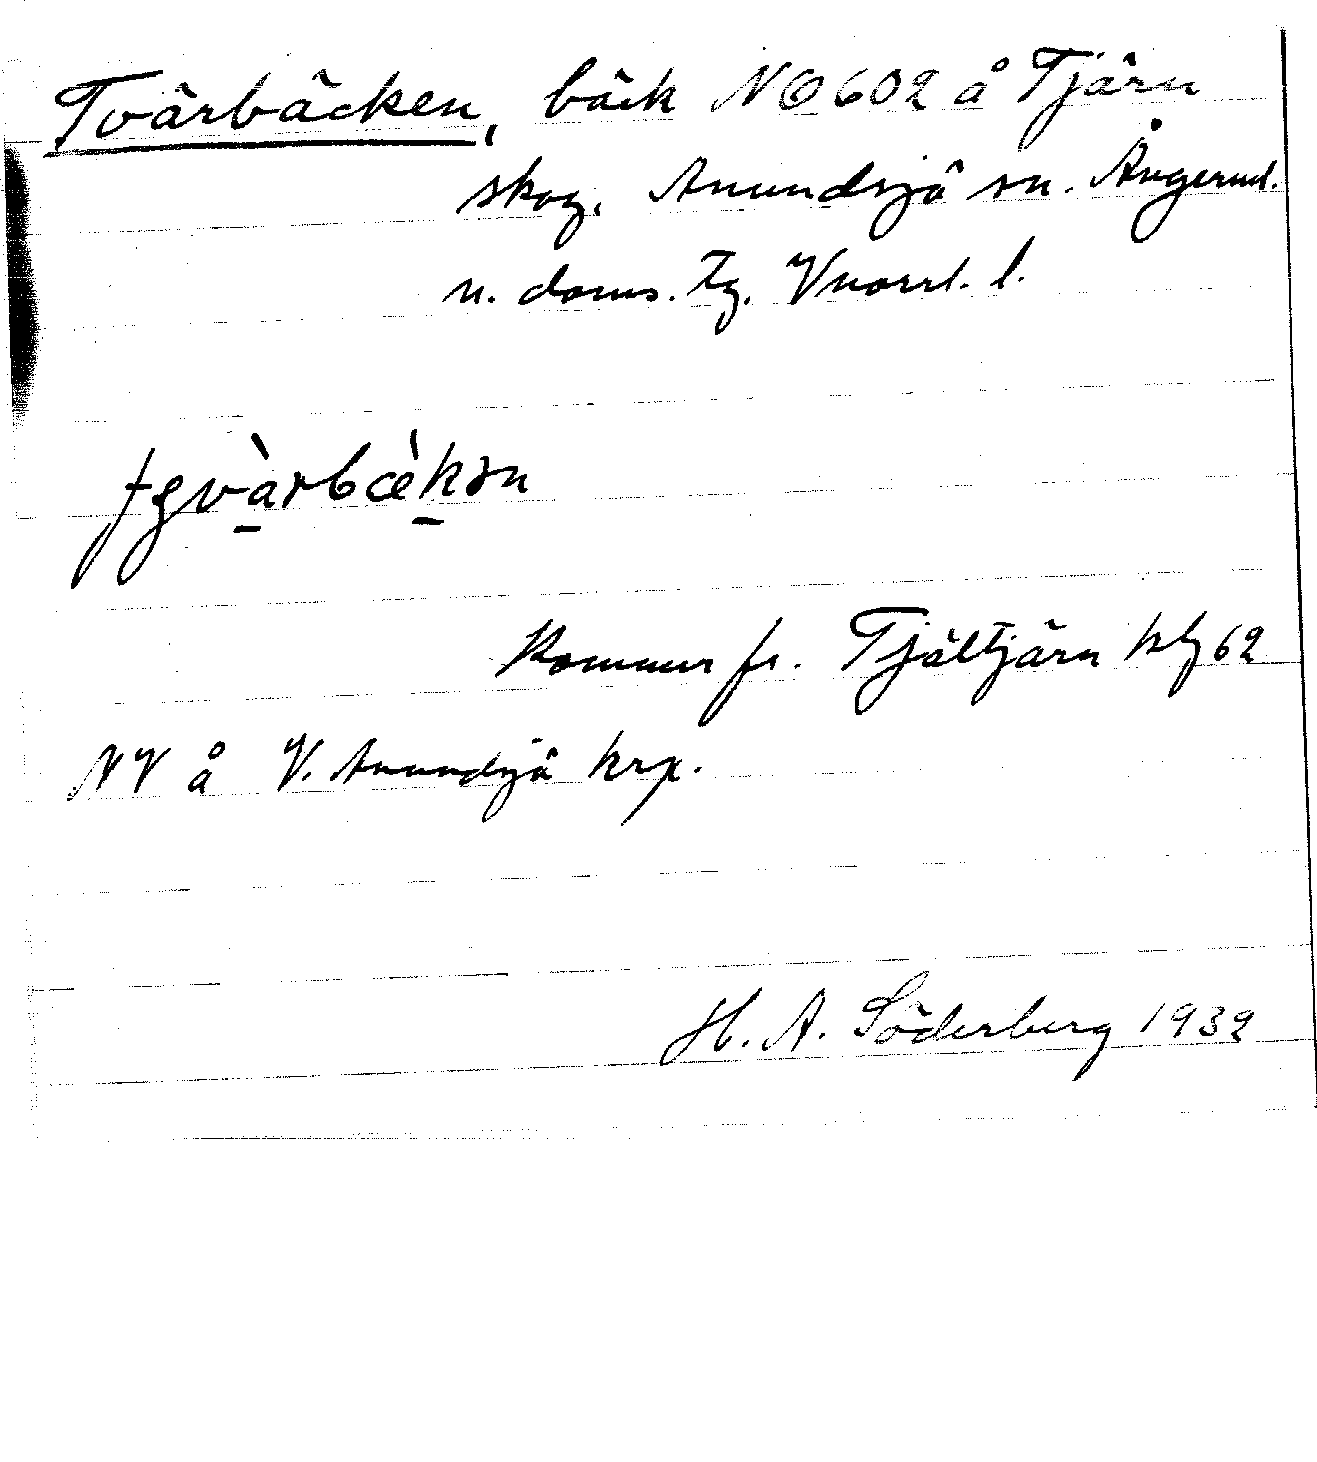 Tvärbäcken, bäck NO 602 å Tjärn
skog. Anundsjö sn. Ångerml.
n. doms. tg. Vnorrl. l.
Kommer fr. Tjältjärn 62
NV å V. Anundsjö krp.
H. A. Söderberg 1932